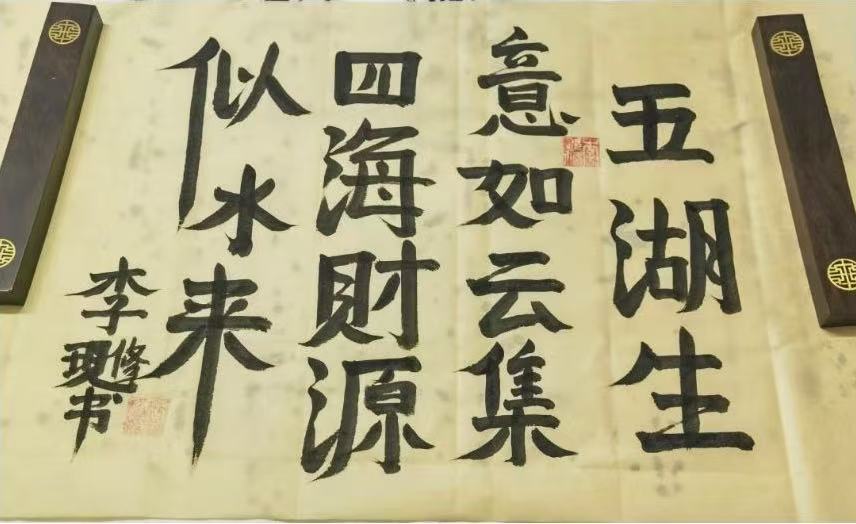 五湖生
意如云集
四海财源
似水来
李修现书